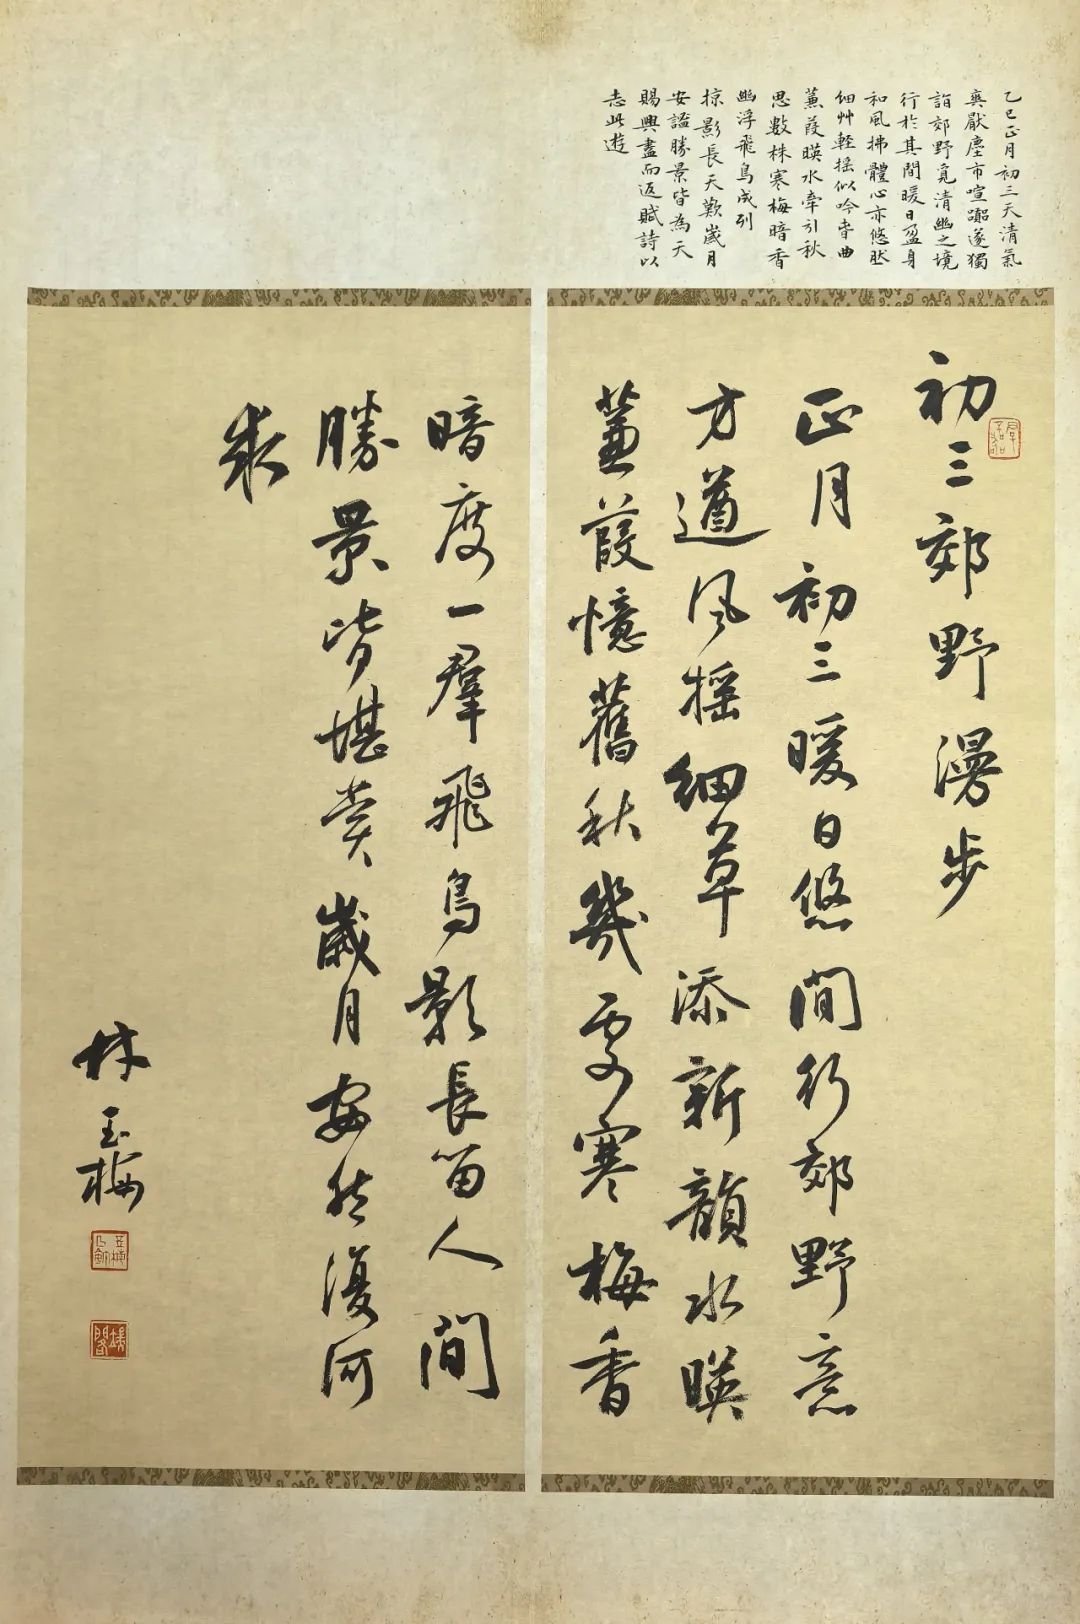 乙巳正月初三天清氣
爽厭塵市喧嚻遂獨
詣郊野覓清幽之境
行於其間暖日盈身
和風拂體心亦悠然
細艸輕搖似吟春曲
蒹葭暎水牽引秋
思數株寒梅暗香
幽浮飛鳥成列
掠影長天歎歲月
安謐勝景皆為天
賜興盡而返賦詩以
志此遊
初三郊野漫步
正月初三暖日悠閒行郊野意
方遒風搖細草添新韻水暎
蒹葭憶舊秋幾處寒梅香
暗度一羣飛鳥影長留人間
勝景皆堪賞歲月安然復何
求
林玉梅